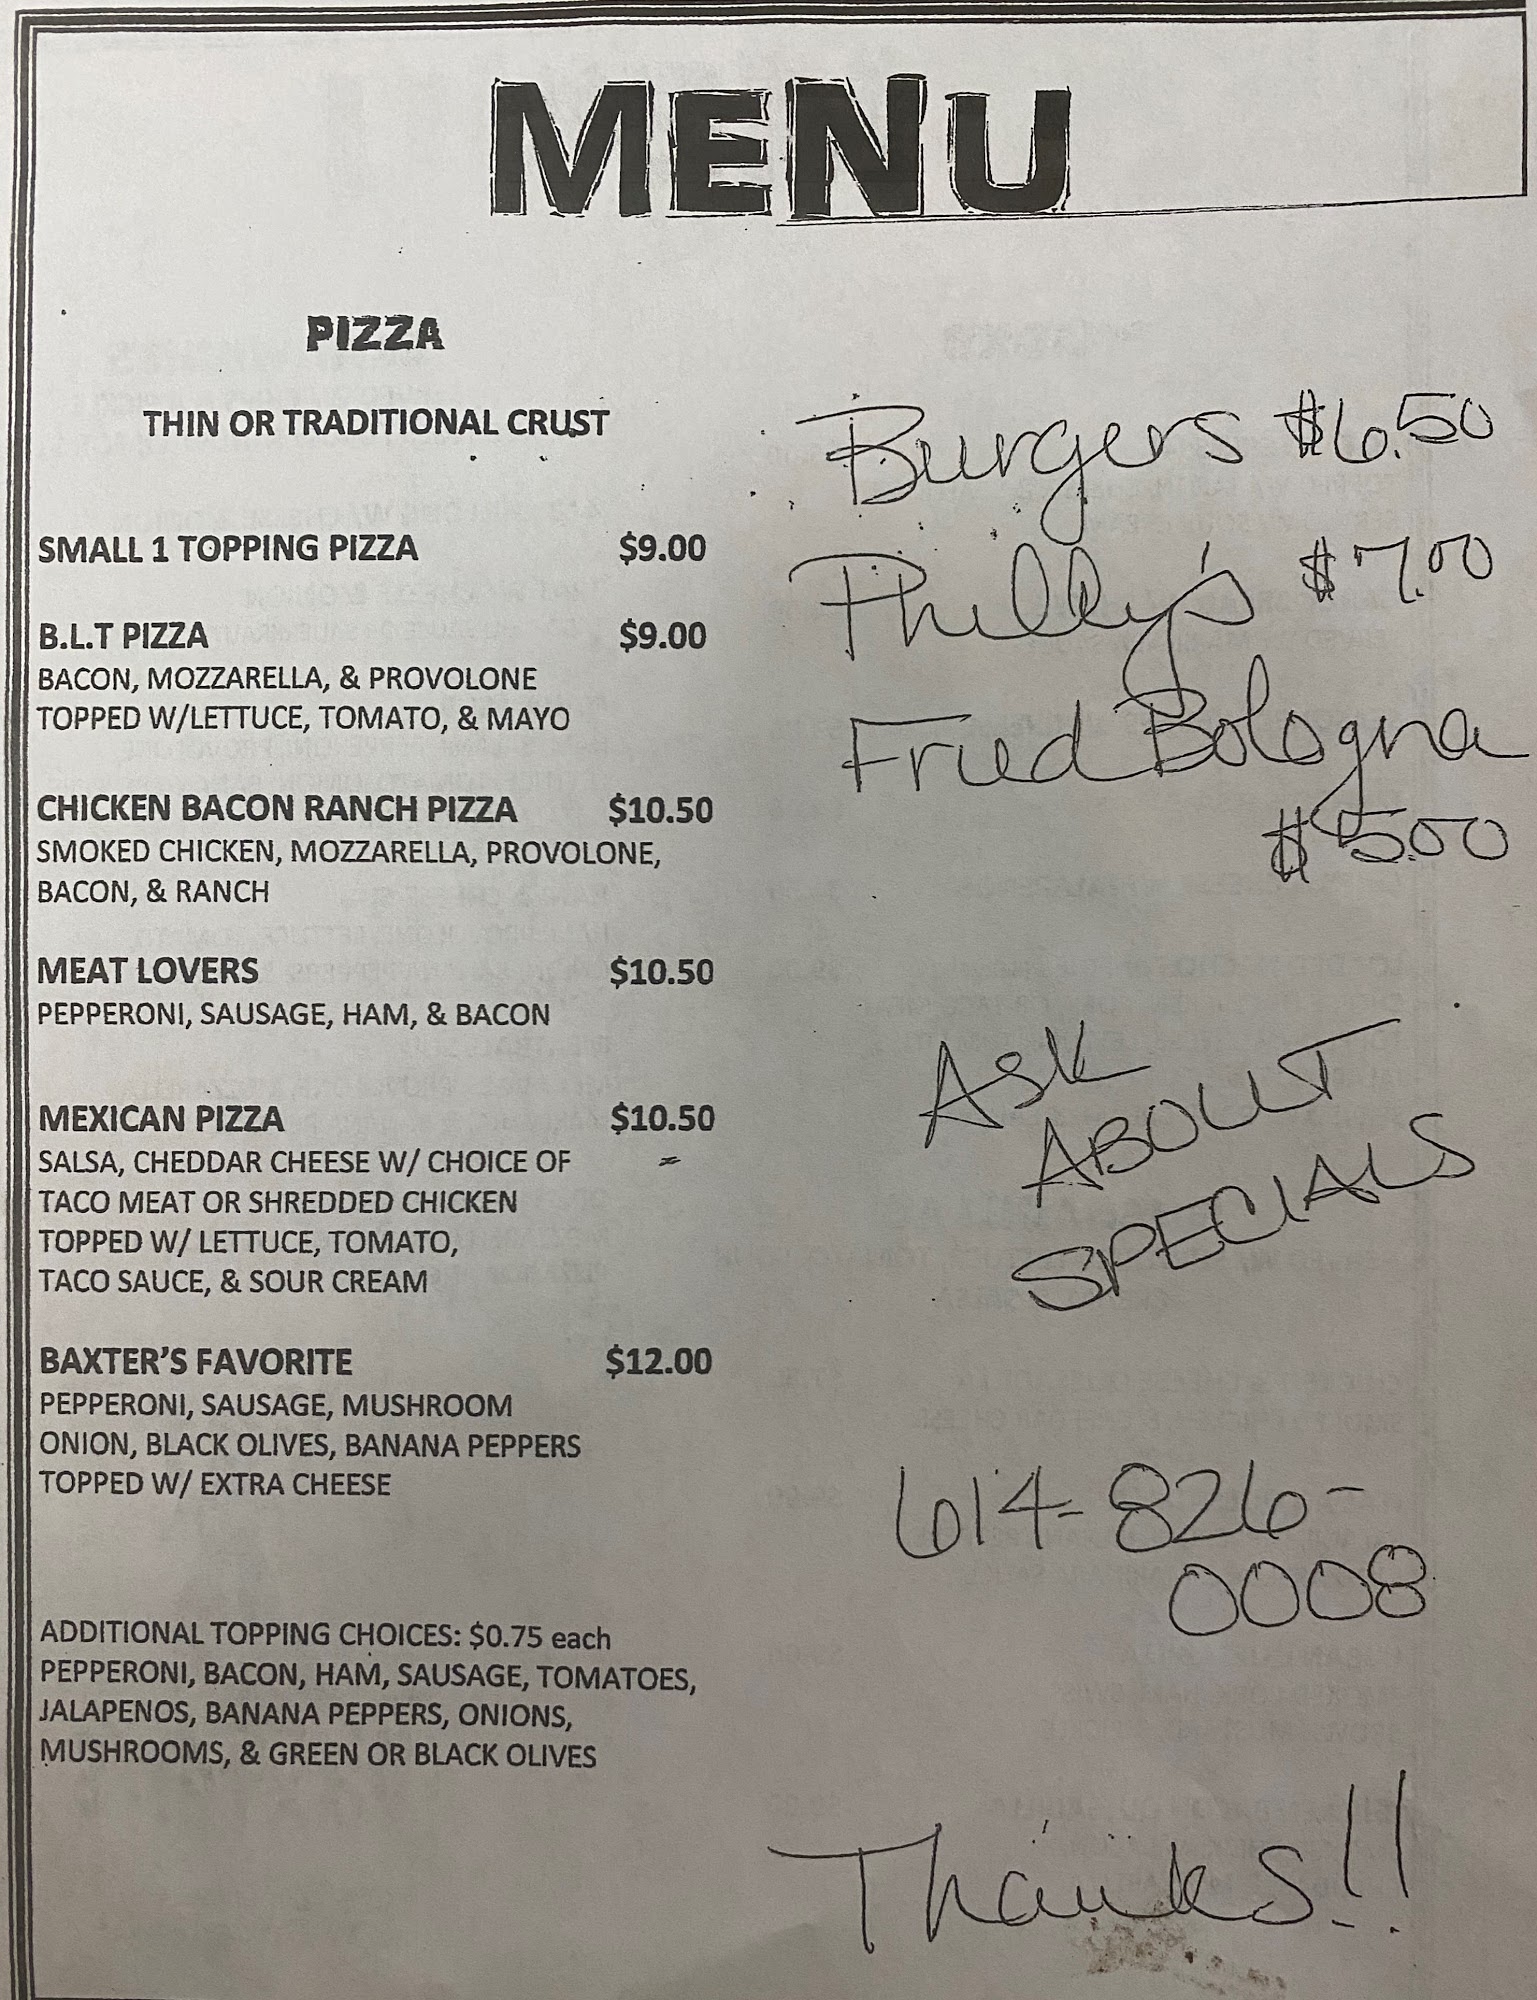 MENU
PIZZA
THIN OR TRADITIONAL CRUST
SMALL 1 TOPPING PIZZA $9.00
B.L.T PIZZA $9.00
BACON, MOZZARELLA, & PROVOLONE
TOPPED W/LETTUCE, TOMATO, & MAYO
CHICKEN BACON RANCH PIZZA $10.50
SMOKED CHICKEN, MOZZARELLA, PROVOLONE,
BACON, & RANCH
MEAT LOVERS $10.50
PEPPERONI, SAUSAGE, HAM, & BACON
MEXICAN PIZZA $10.50
SALSA, CHEDDAR CHEESE W/ CHOICE OF
TACO MEAT OR SHREDDED CHICKEN
TOPPED W/ LETTUCE, TOMATO,
TACO SAUCE, & SOUR CREAM
BAXTER'S FAVORITE $12.00
PEPPERONI, SAUSAGE, MUSHROOM
ONION, BLACK OLIVES, BANANA PEPPERS
TOPPED W/ EXTRA CHEESE
ADDITIONAL TOPPING CHOICES: $0.75 each
PEPPERONI, BACON, HAM, SAUSAGE, TOMATOES,
JALAPENOS, BANANA PEPPERS, ONIONS,
MUSHROOMS, & GREEN OR BLACK OLIVES
Burgers $6.50
Philly's $7.00
Fried Bologna
$5.00
Ask
ABOUT
SPECIALS
614-826-
0008
Thanks!!